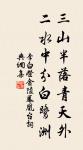 三山半落青天外
二水中分白鷺洲
李白登金陵鳳凰台詞
典酒集